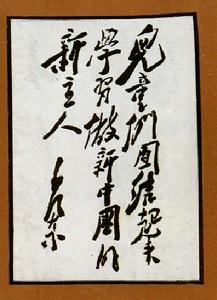 兒童們團結起来
學習做新中國的
新主人
毛澤东